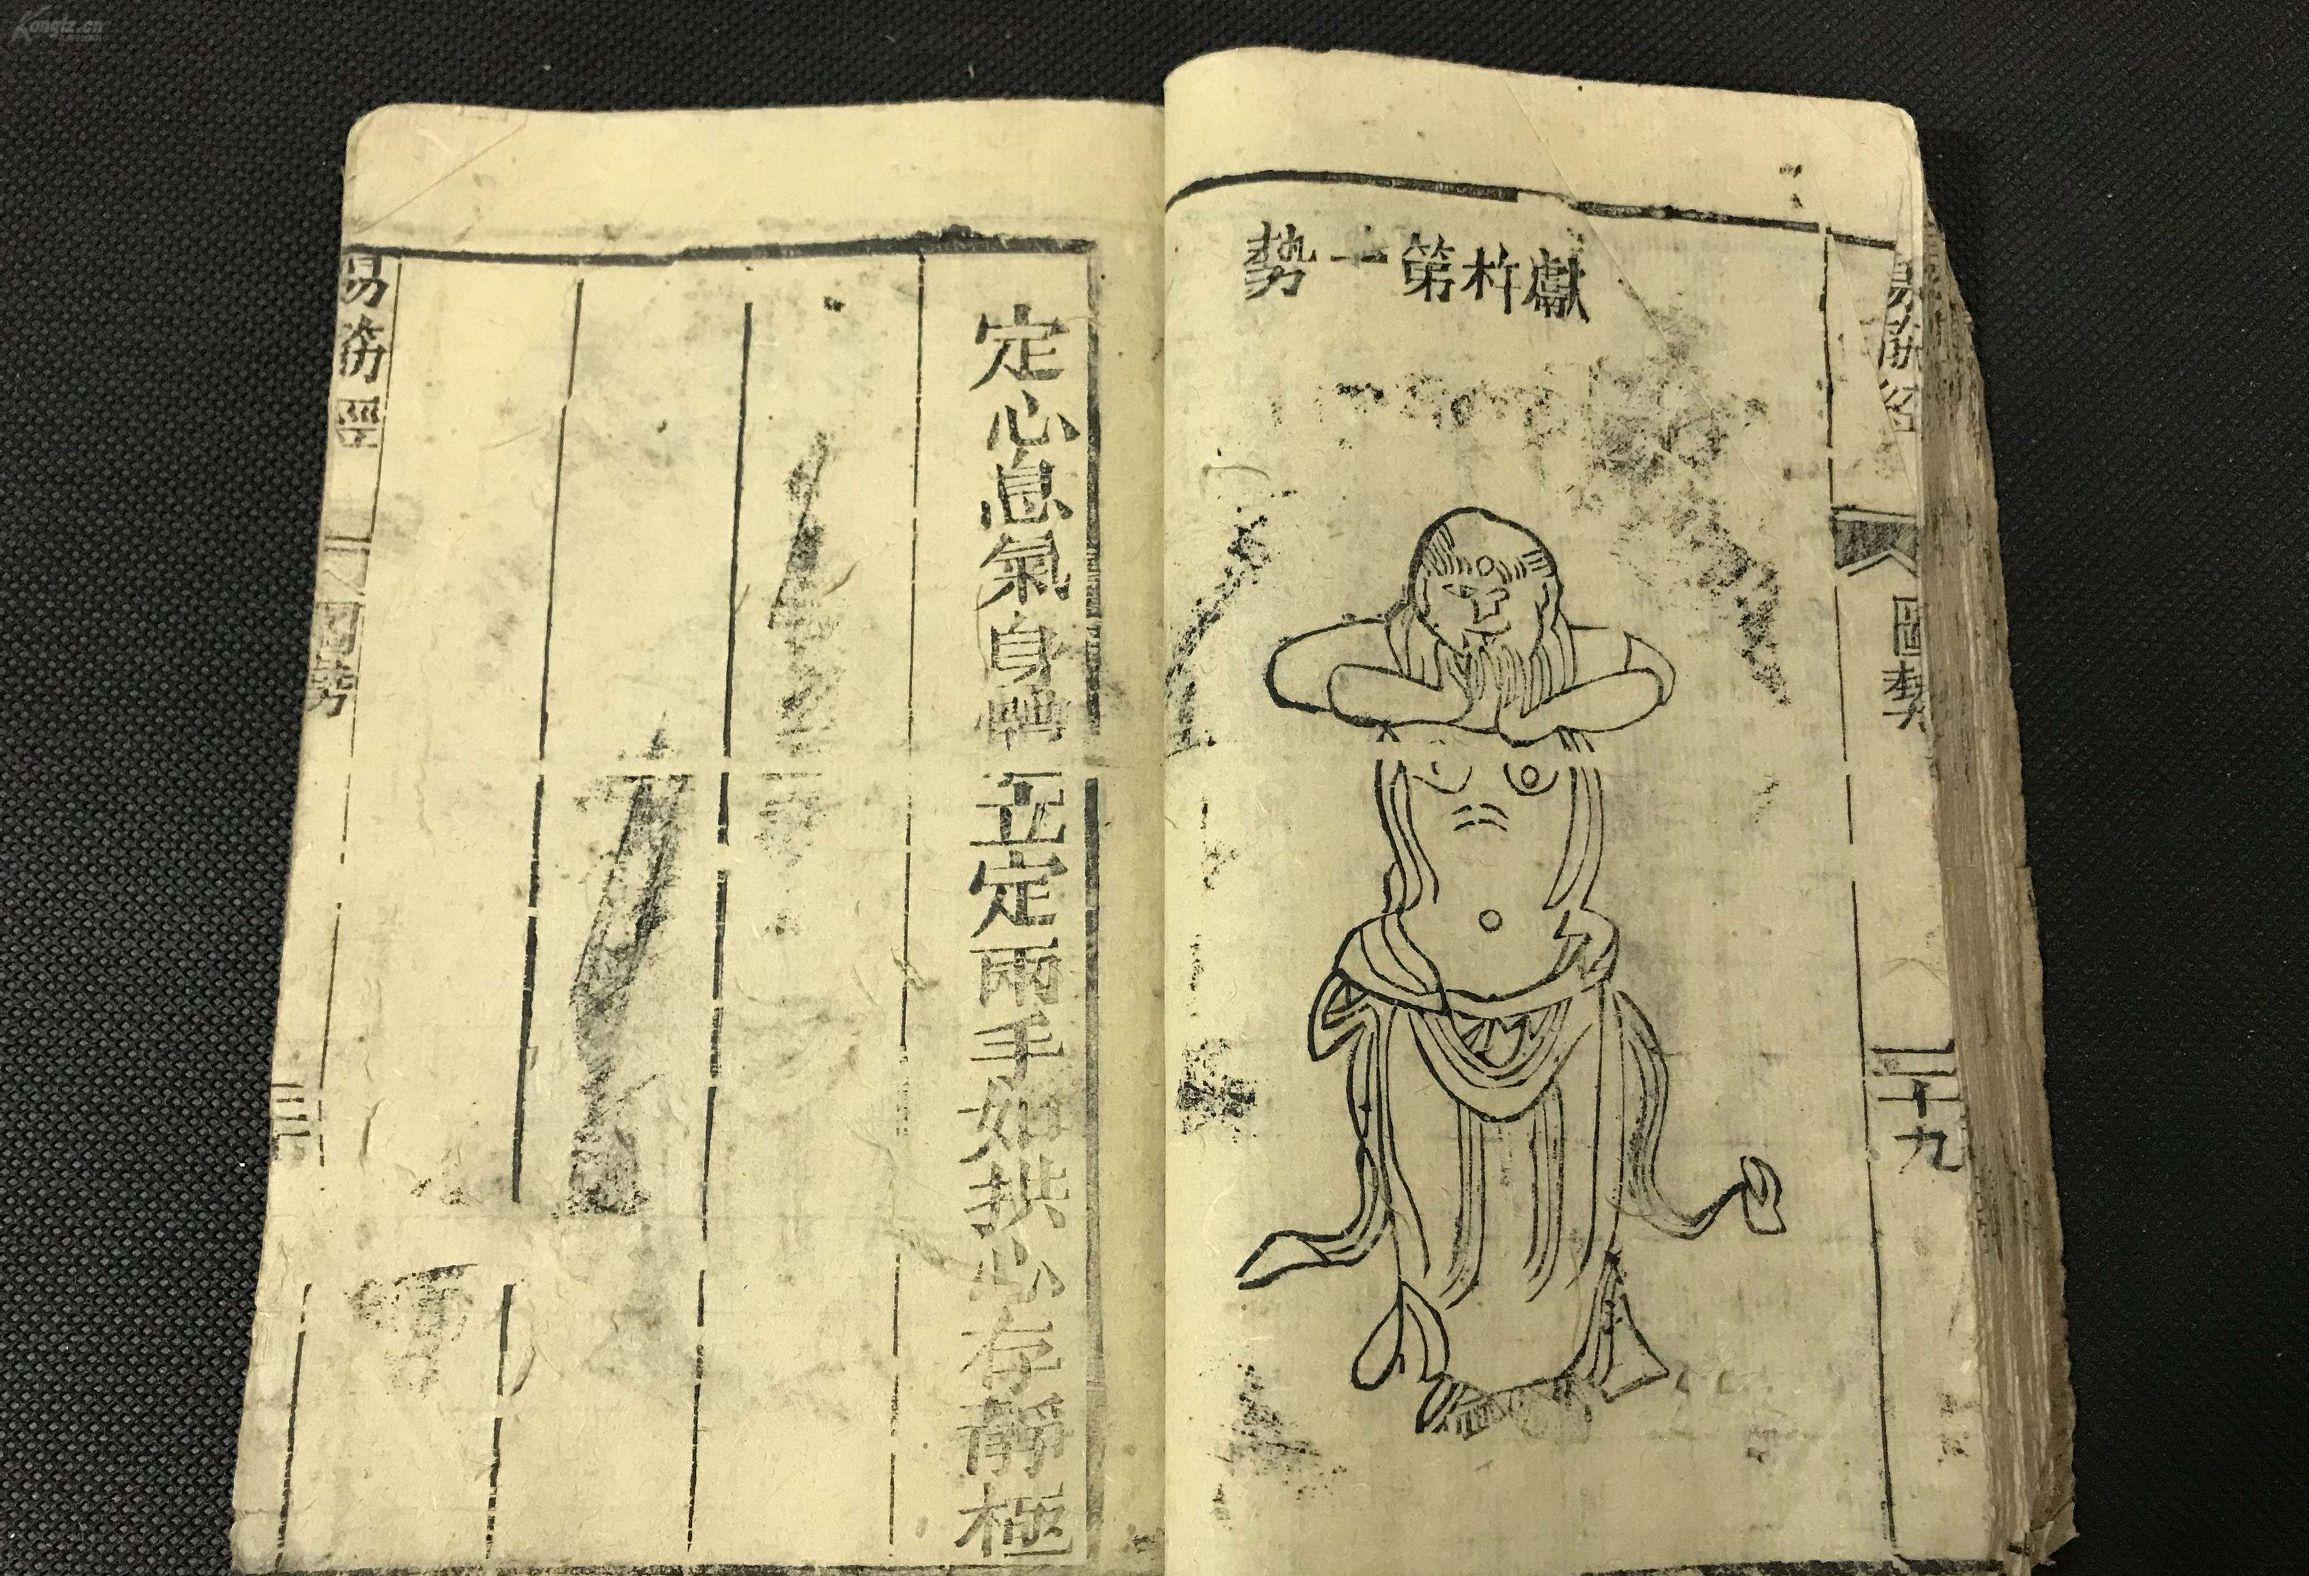 易筋經
圖勢
二十九
獻杵第一勢
定心息氣身體立定兩手如拱心存靜極
易筋經
圖勢
Kongfz.cn